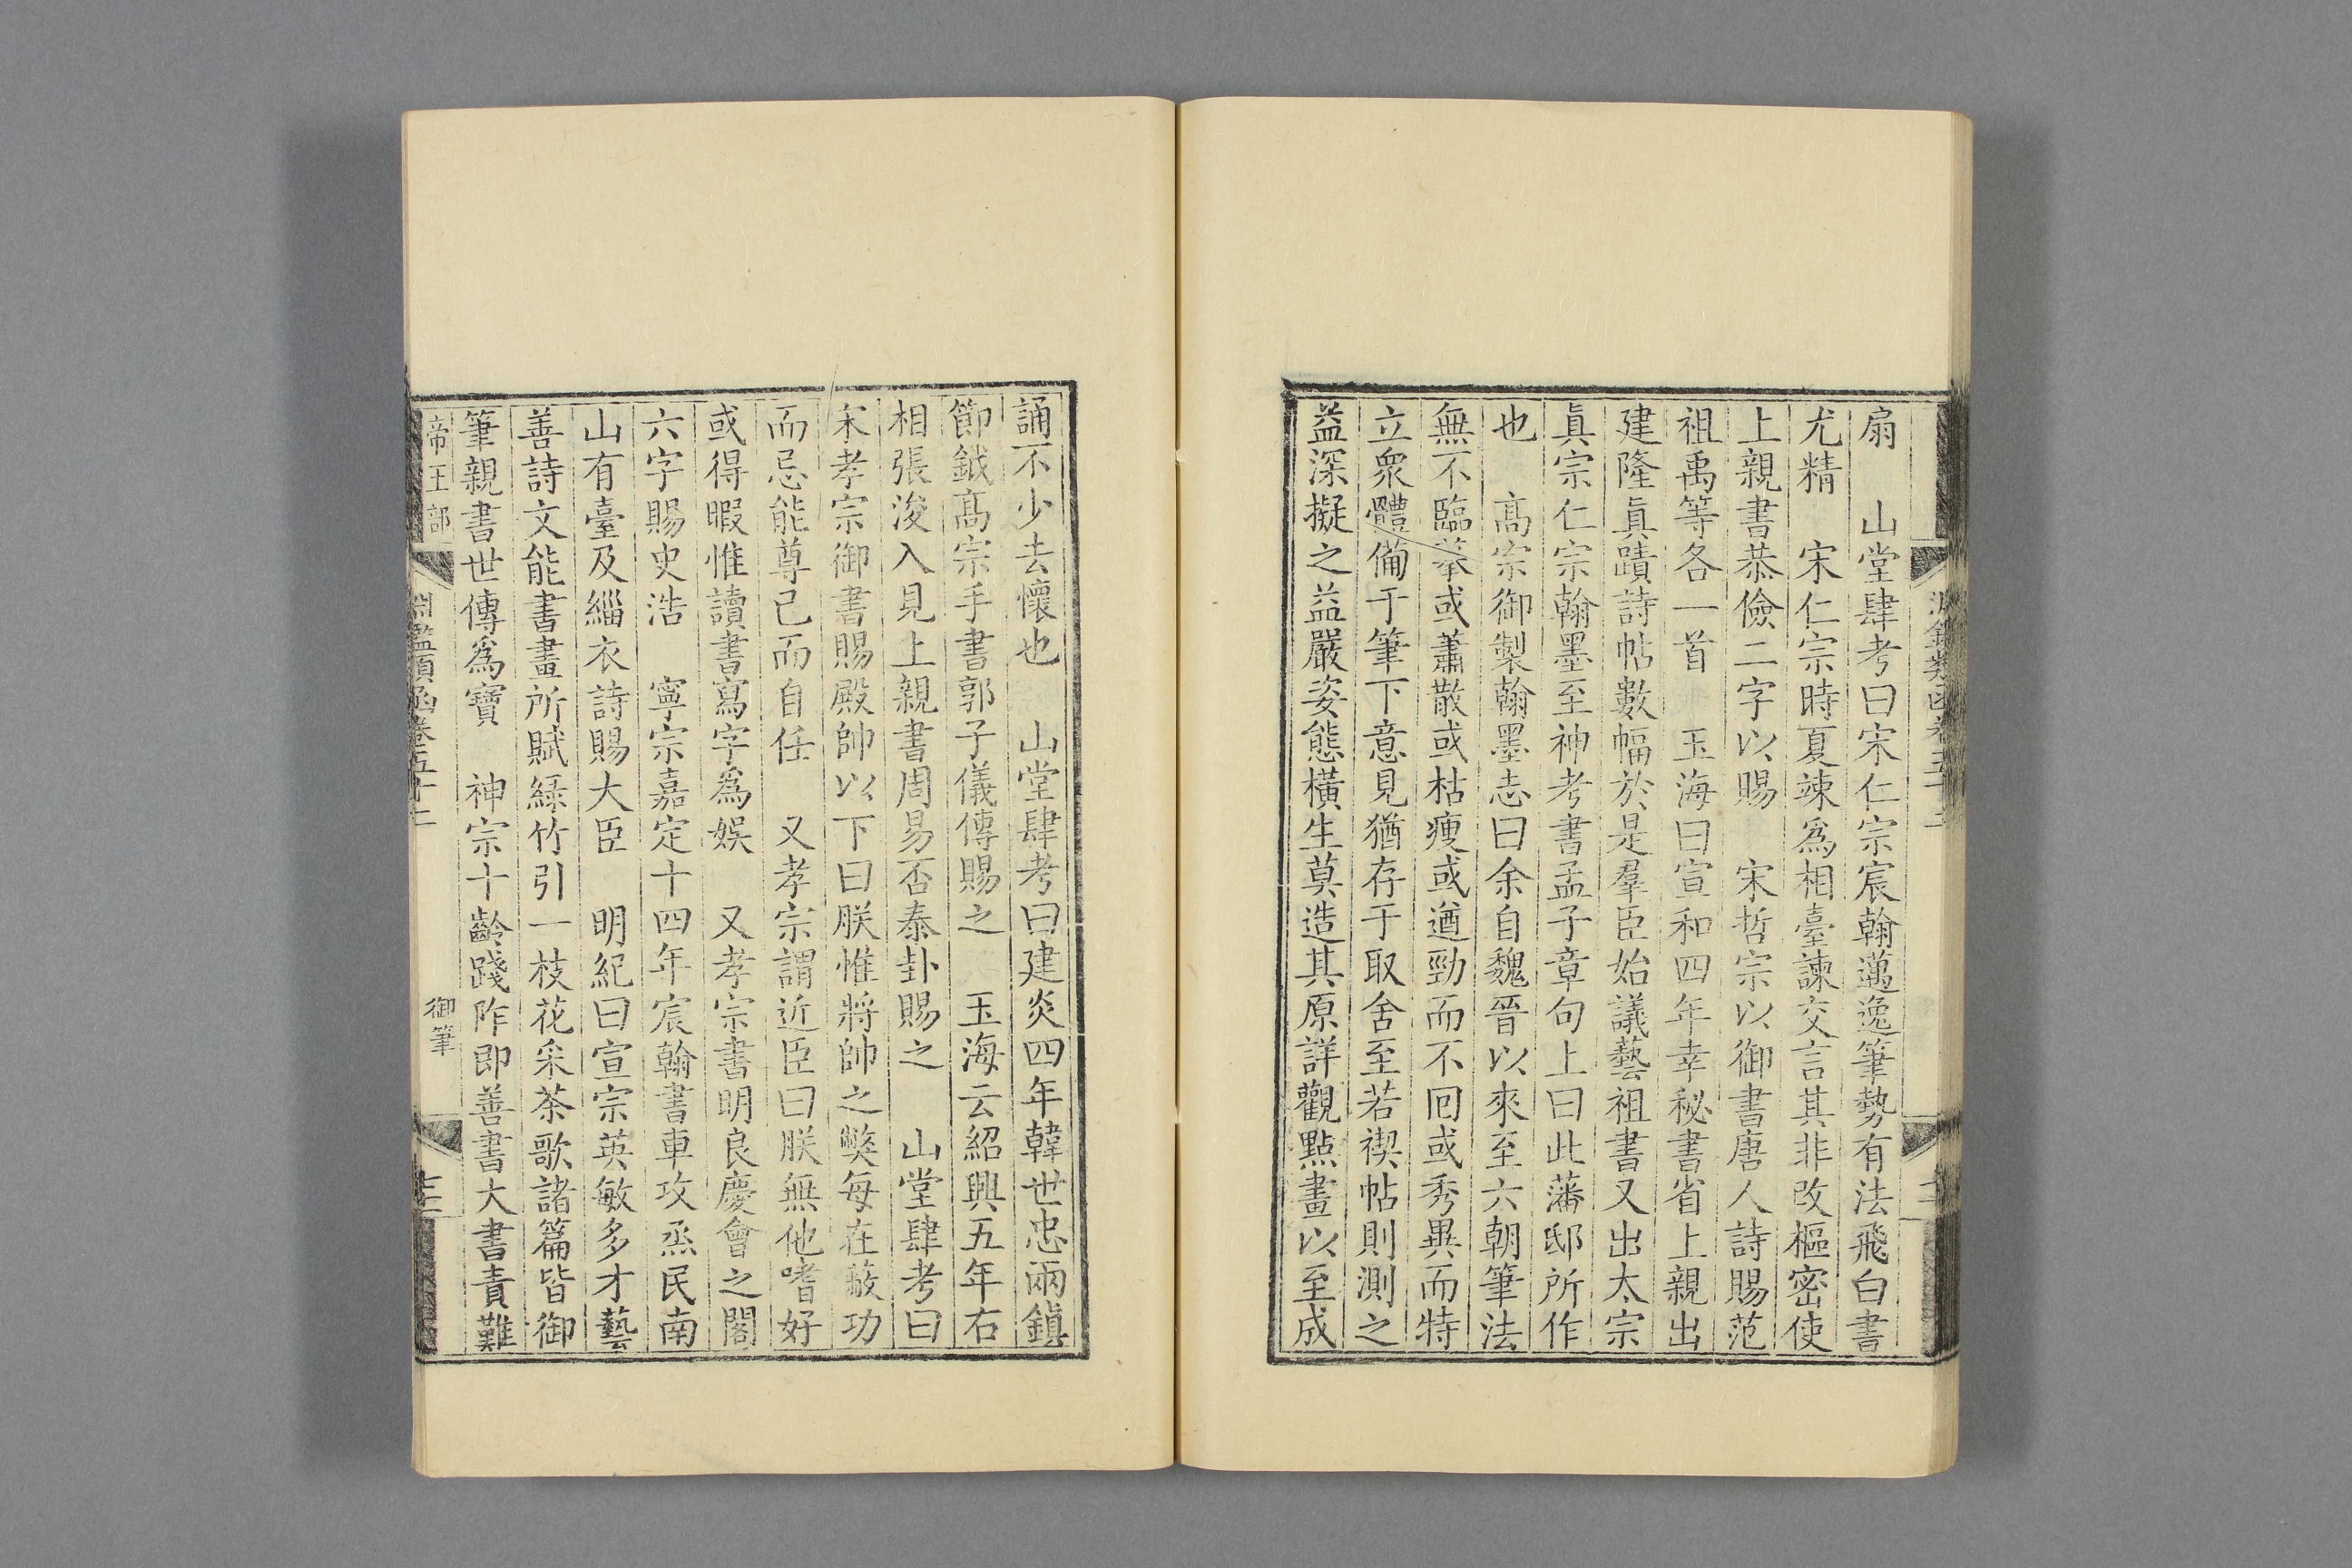 扇　山堂肆考曰宋仁宗宸翰邁逸筆勢有法飛白書
尤精　宋仁宗時夏竦爲相臺諫交言其非改樞密使
上親書恭儉二字以賜　宋哲宗以御書唐人詩賜范
祖禹等各一首　玉海曰宣和四年幸秘書省上親出
建隆眞蹟詩帖數幅於是羣臣始議藝祖書又出太宗
眞宗仁宗翰墨至神考書孟子章句上曰此藩邸所作
也　高宗御製翰墨志曰余自魏晉以來至六朝筆法
無不臨摹或蕭散或枯瘦或遒勁而不回或秀異而特
立衆體備于筆下意見猶存于取舍至若禊帖則測之
益深擬之益嚴姿態橫生莫造其原詳觀點畫以至成
誦不少去懷也　山堂肆考曰建炎四年韓世忠兩鎮
節鉞高宗手書郭子儀傳賜之　玉海云紹興五年右
相張浚入見上親書周易否泰卦賜之　山堂肆考曰
宋孝宗御書賜殿帥以下曰朕惟將帥之弊每在蔽功
而忌能尊己而自任　又孝宗謂近臣曰朕無他嗜好
或得暇惟讀書寫字爲娛　又孝宗書明良慶會之閣
六字賜史浩　寧宗嘉定十四年宸翰書車攻烝民南
山有臺及緇衣詩賜大臣　明紀曰宣宗英敏多才藝
善詩文能書畫所賦綠竹引一枝花采茶歌諸篇皆御
筆親書世傳爲寶　神宗十齡踐阼即善書大書責難
帝王部　淵鑑類函卷五十二　御筆